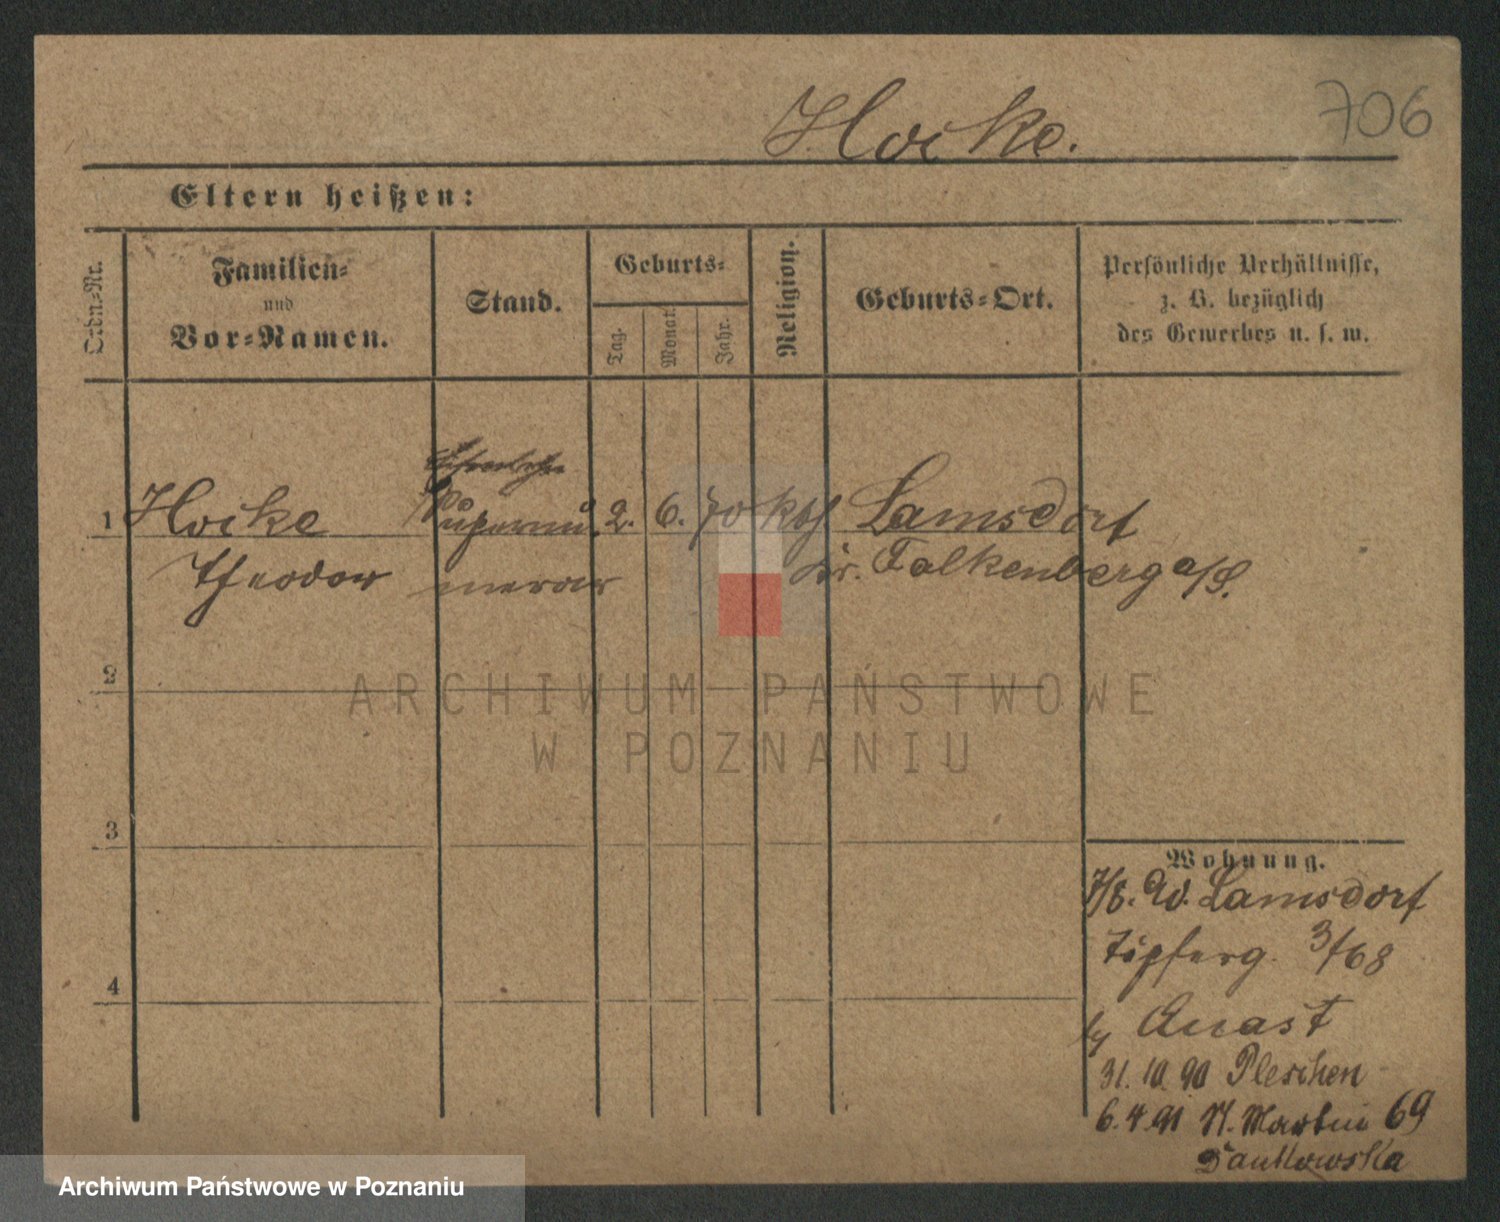 706
Hocke.
Eltern heißen:
Ordn.-Nr.
Familien-
und
Vor-Namen.
Stand.
Geburts-
Tag.
Monat.
Jahr.
Religion.
Geburts-Ort.
Persönliche Verhältnisse,
z. B. bezüglich
des Gewerbes u. s. w.
1 Hocke Supernu 2. 6. 70 kth Lamsdorf
Theodor merar Kr. Falkenberg a/S.
2
3
4
Wohnung.
7/8. 90. Lamsdorf
Töpferg. 3/68
by Anast
31. 10. 90 Pleschen
6. 4. 91 St. Martin 69
ARCHIWUM PAŃSTWOWE
W POZNANIU
Archiwum Państwowe w Poznaniu